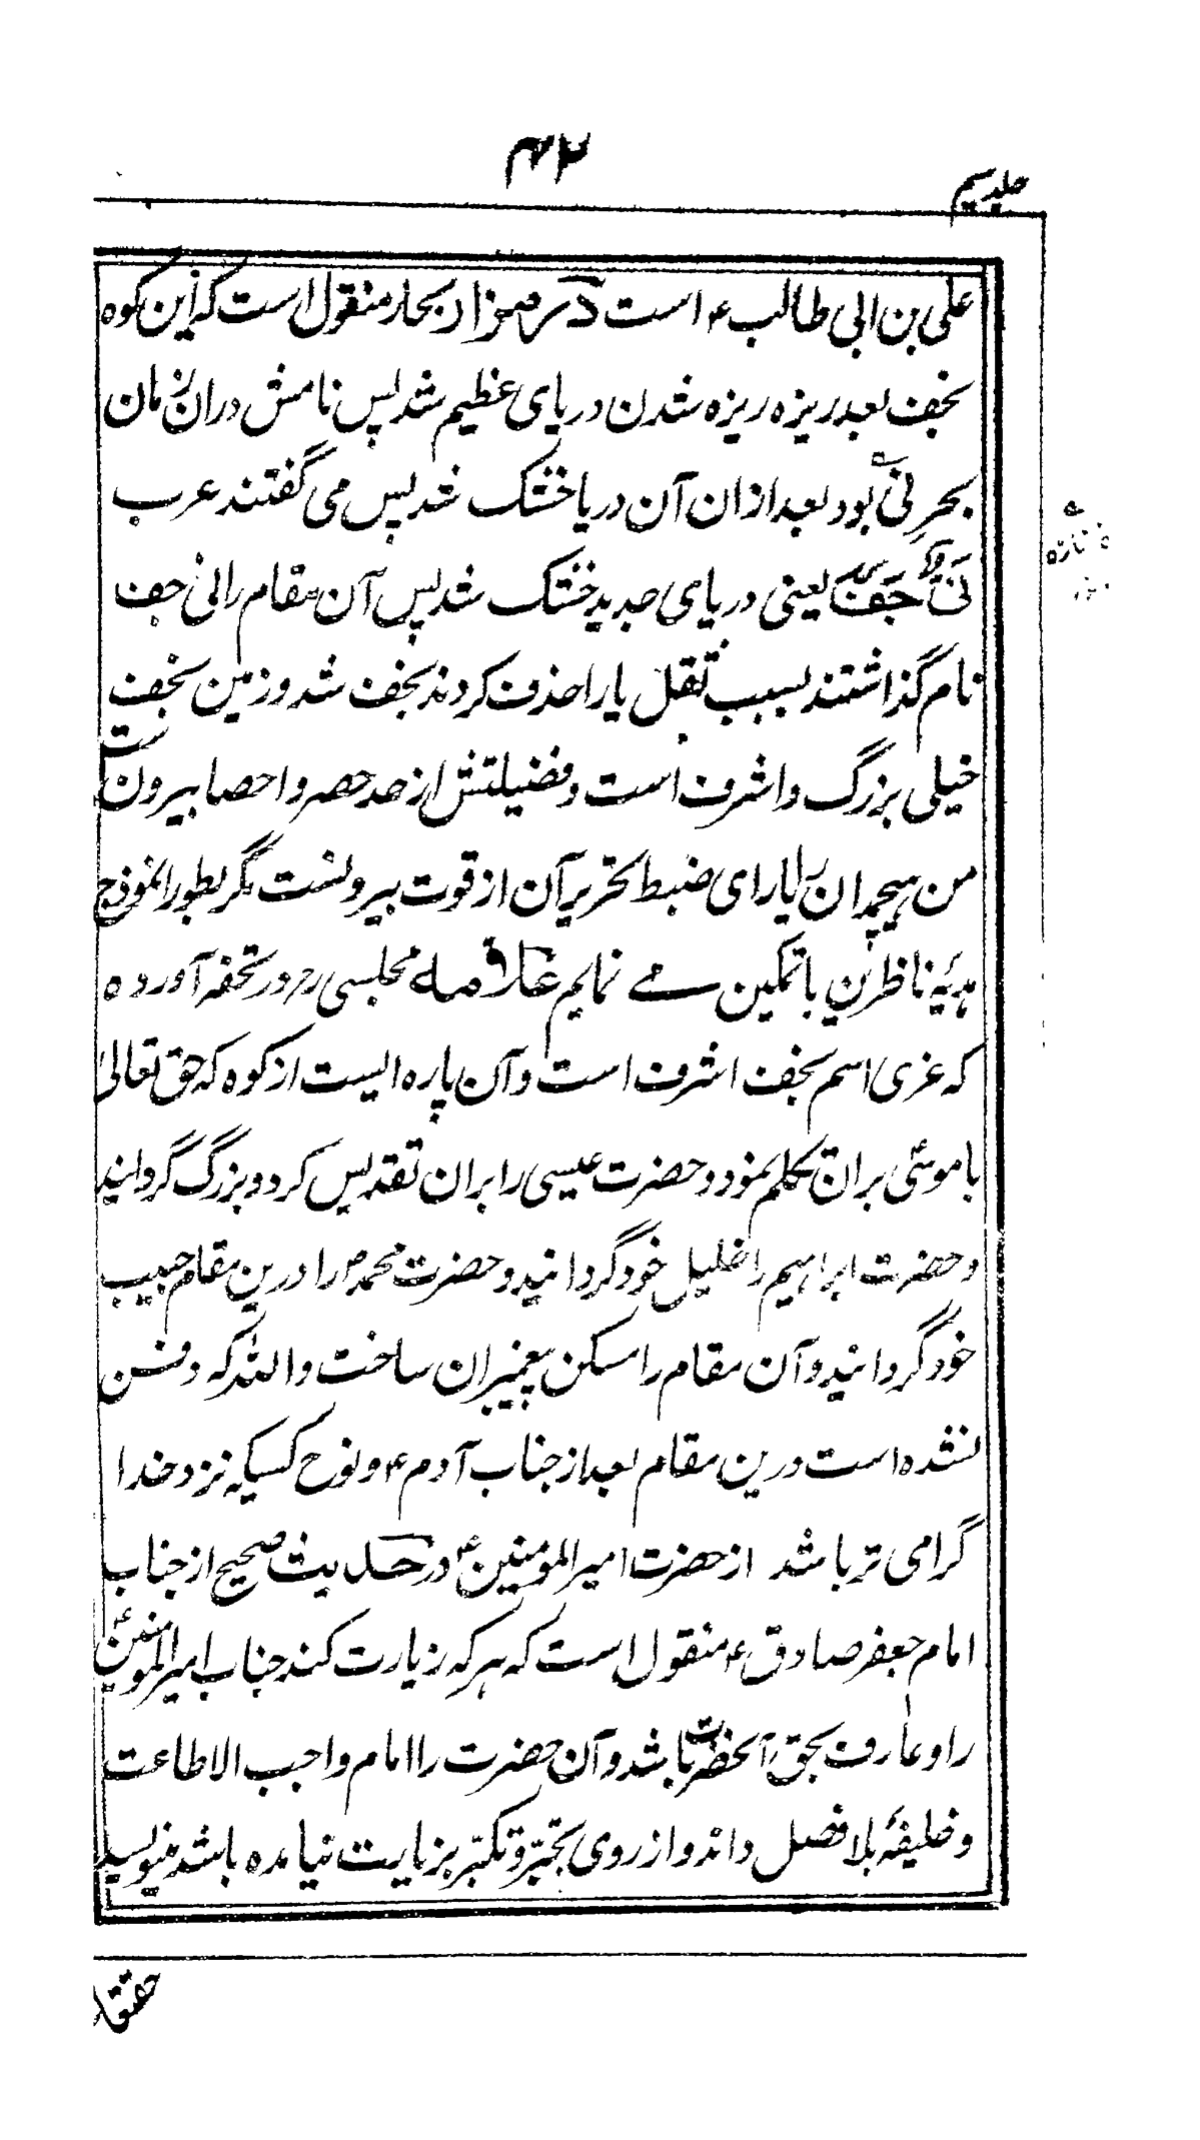 ۴۲
جلد سیم
علی بن ابی طالب ع است در مزار بحار منقول است که این کوه
نجف بعد ریزه ریزه شدن دریای عظیم شد پس نامش دران زمان
بحر نی بود بعد ازان آن دریا خشک شد پس می گفتند عرب
نی جف یعنی دریای جدید خشک شد پس آن مقام را نی جف
نام گذاشتند بسبب ثقل یا را حذف کردند نجف شد و زمین نجف
خیلی بزرگ و اشرف است و فضیلتش از حد حصر و احصا بیرون ست
من هیچمدان را یارای ضبط تحریر آن از قوت بیرونست مگر بطور انموذج
هدیۀ ناظرین باتمکین مے نمایم علامه مجلسی رح در تحفه آورده
که غری اسم نجف اشرف است و آن پاره ایست از کوه که حق تعالی
با موسیٰ بران تکلم نمود و حضرت عیسی را بران تقدیس کرد و بزرگ گردانید
و حضرت ابراهیم را خلیل خود گردانید و حضرت محمد ص را درین مقام حبیب
خود گردانید و آن مقام را مسکن پیغمبران ساخت و الله که دفن
نشده است درین مقام بعد از جناب آدم ع و نوح کسیکه نزد خدا
گرامی تر باشد از حضرت امیر المومنین ع در حدیث صحیح از جناب
امام جعفر صادق ع منقول است که هر که زیارت کند جناب امیر المومنین ع
را و عارف بحق آنحضرت باشد و آن حضرت را امام واجب الاطاعت
و خلیفۀ بلا فصل داند و از روی تجبّر و تکبّر بزیارت نیامده باشد بنویسد
حقتعا